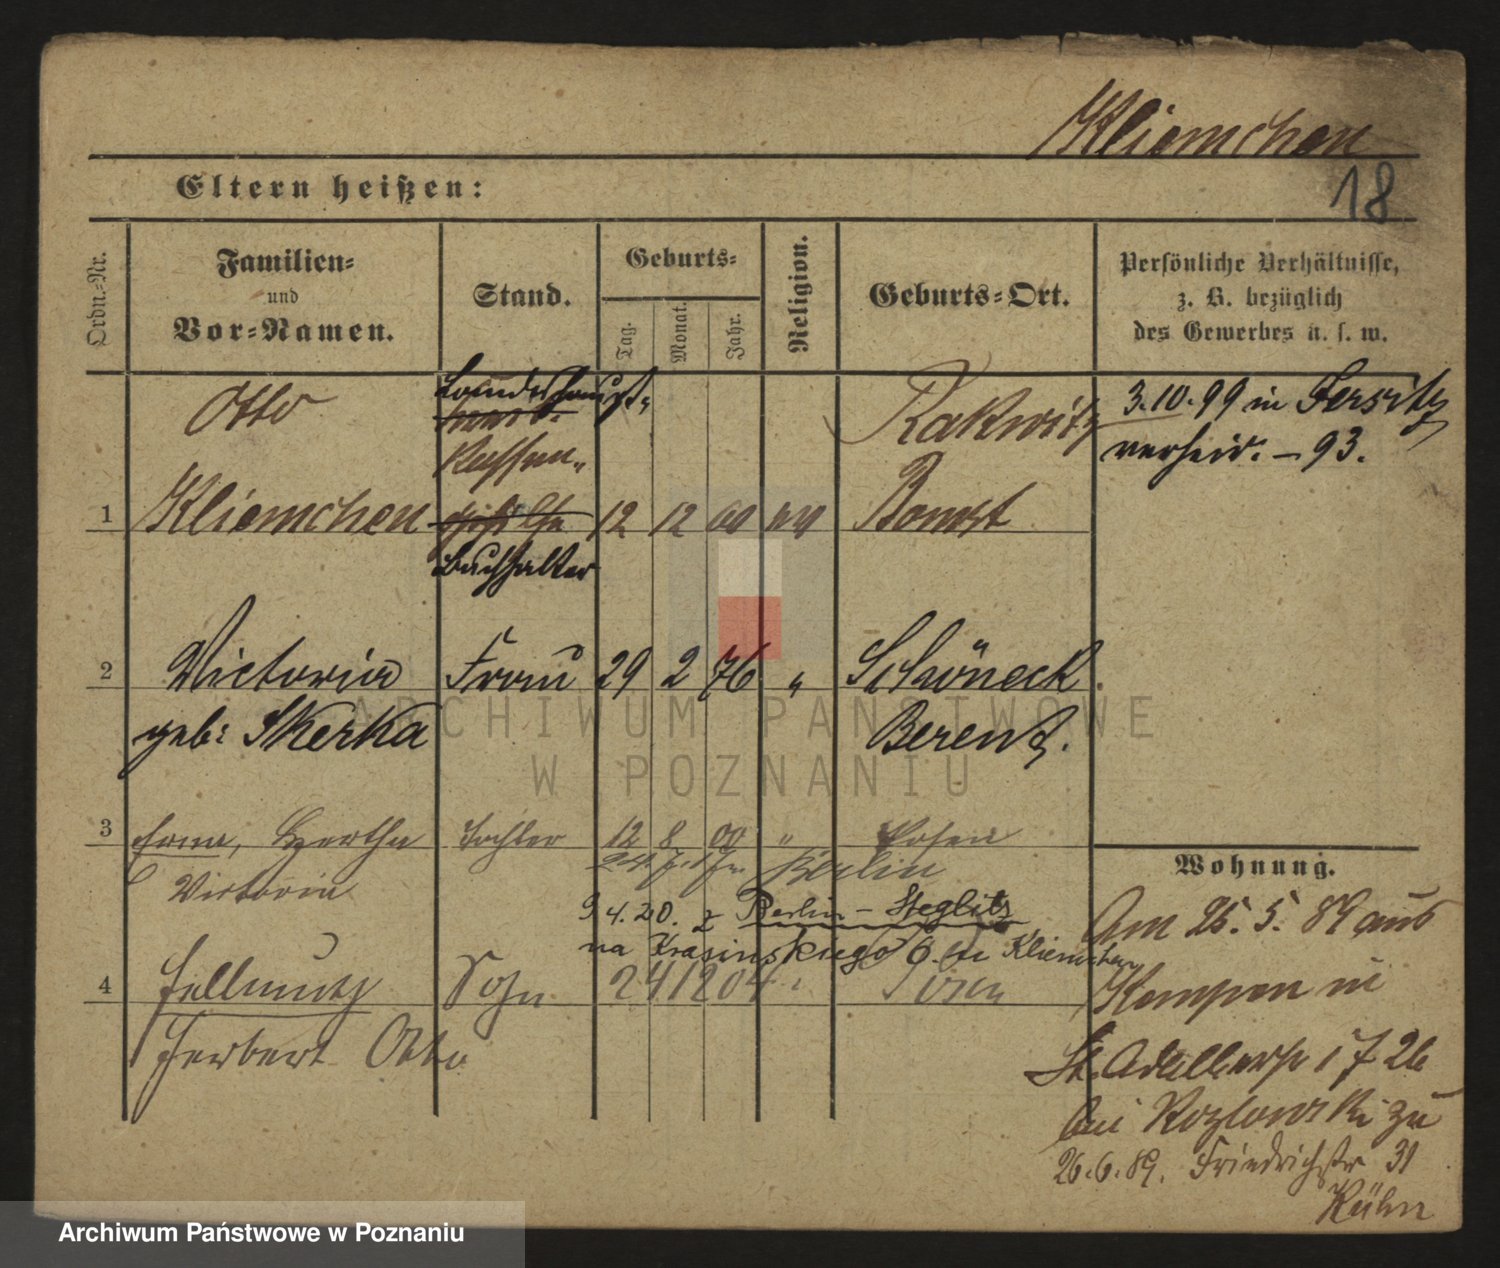 Kliemchen
18
Eltern heißen:
Ordn.-Nr.
Familien-
und
Vor-Namen.
Stand.
Geburts-
Tag.
Monat.
Jahr.
Religion.
Geburts-Ort.
Persönliche Verhältnisse,
z. B. bezüglich
des Gewerbes u. s. w.
Otto
Landeshaupt-
Rakwitz
3.10.99 in Fersitz
verheir. – 93.
Kassen-
1 Kliemchen 12 12 Bomst
Buchhalter
2 Victoria Frau 29 2 76 " Schöneck
geb: Skerka
Berent.
3 Erna, Hertha Tochter 12 8 00 " Posen
Victoria
Berlin
9.4.20. z Berlin – Steglitz
na Krasinskiego 6. Kliemchen
4 Hellmuth Sohn 24 12 04 Posen
Herbert Otto
Wohnung.
Am 25. 5. 89 aus
Kempen in
St. Adalbertstr 26
bei Kozlowski zu
26.6.89. Friedrichstr 31
Kühn
ARCHIWUM PAŃSTWOWE
W POZNANIU
Archiwum Państwowe w Poznaniu